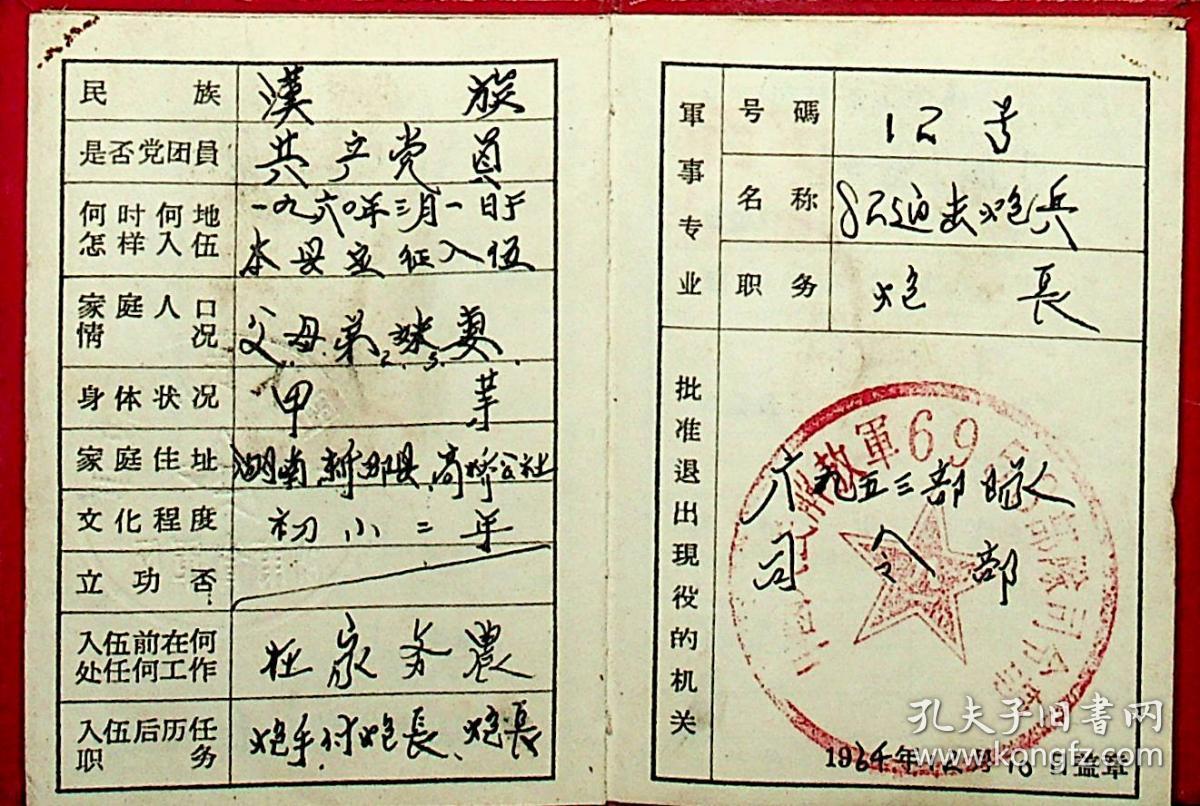 民族 漢族
是否党团員 共产党員
何时何地 一九六〇年三月一日于
怎样入伍 本县应征入伍
家庭人口
情况 父.母.弟2.妹3.妻.
身体状况 甲等
家庭住址 湖南新邵县.高桥公社
文化程度 初小二年
立功否
入伍前在何
处任何工作 在家务農
入伍后历任
职务 炮手.付炮長.炮長
軍事专业
号碼 12号
名称 82迫击炮兵
职务 炮長
批准退出現役的机关
六九五三部隊
司令部
解放軍69
部隊司令部
1964年12月10日盖章
孔夫子旧書网
www.kongfz.com